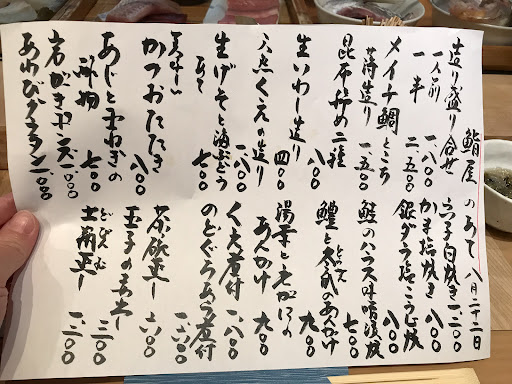 鮨屋のあて 八月二十二日
造り盛り合せ
一人前 一.八〇〇
一半 二.五〇〇
メイチ鯛ところ
薄造り 一.五〇〇
昆布〆二種 八〇〇
生いわし造り 四〇〇
くえの造り 一.八〇〇
生げそと海ぶどう
あて 七〇〇
かつおたたき 八〇〇
あじと玉ねぎの
酢物 七〇〇
岩がきポンズ 一.〇〇〇
あわびグラタン 一.〇〇〇
穴子白焼き 一.二〇〇
かま塩焼き 八〇〇
銀ダラ塩こうじ焼 八〇〇
鮭のハラス味噌漬焼 七〇〇
鱧と冬瓜のあんかけ 九〇〇
湯葉とずがにの
あんかけ 九〇〇
くえ煮付 一.八〇〇
のどぐろあら煮付 一.六〇〇
茶碗蒸し 六〇〇
土瓶蒸し
どびんむし 一.三〇〇